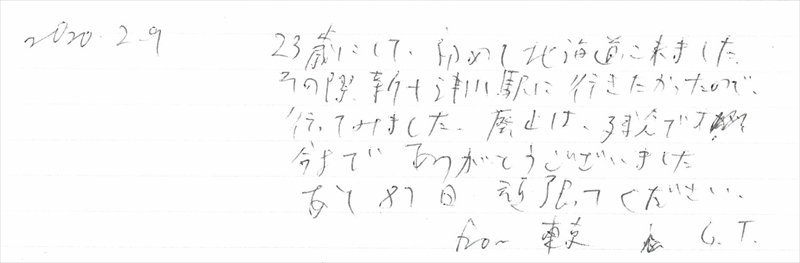 2020.2.9
23歳にして、初めて北海道に来ました
その際、新十津川駅に行きたかったので、
行ってみました。廃止は、残念です
今まで ありがとうございました
あと87日 頑張ってください。
from 東京 G.T.